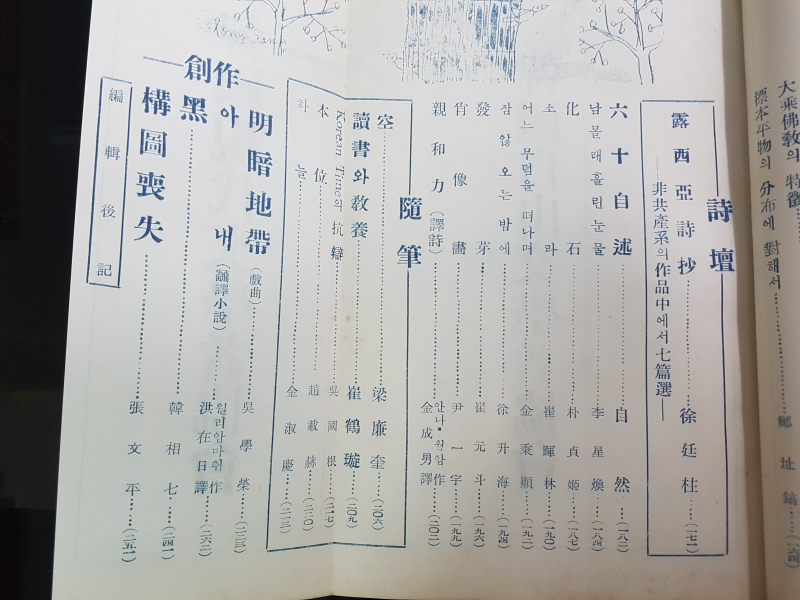 大乘佛敎의 特徵
標本平物의 分布에 對해서……鄭址鎬……(一六四)
詩壇
露西亞詩抄……徐廷柱……(一七一)
——非共產系의 作品中에서 七篇選——
六十自述……自然……(一八二)
남몰래흘린눈물……李星煥……(一八四)
化石……朴貞姬……(一八七)
소라……崔暉林……(一九〇)
어느 무덤을 떠나며……金秉顯……(一九二)
잠않오는밤에……徐升海……(一九四)
發芽……崔元斗……(一九六)
肖像畵……尹一宇……(一九九)
親和力(譯詩)……안나・윅암作 金成男譯……(二〇二)
隨筆
空……梁廉奎……(二〇六)
讀書와敎養……崔鶴璇……(二〇九)
Korean Time의 抗辯……吳國根……(二一七)
本位……趙載赫……(二二〇)
하늘……金淑慶……(二一三)
——創作——
明暗地帶(戲曲)……吳學榮……(二三三)
아내(飜譯小說)……윌리암마취作 洪在日譯……(二六二)
黑……韓相七……(二四一)
構圖喪失……張文平……(二五一)
編輯後記